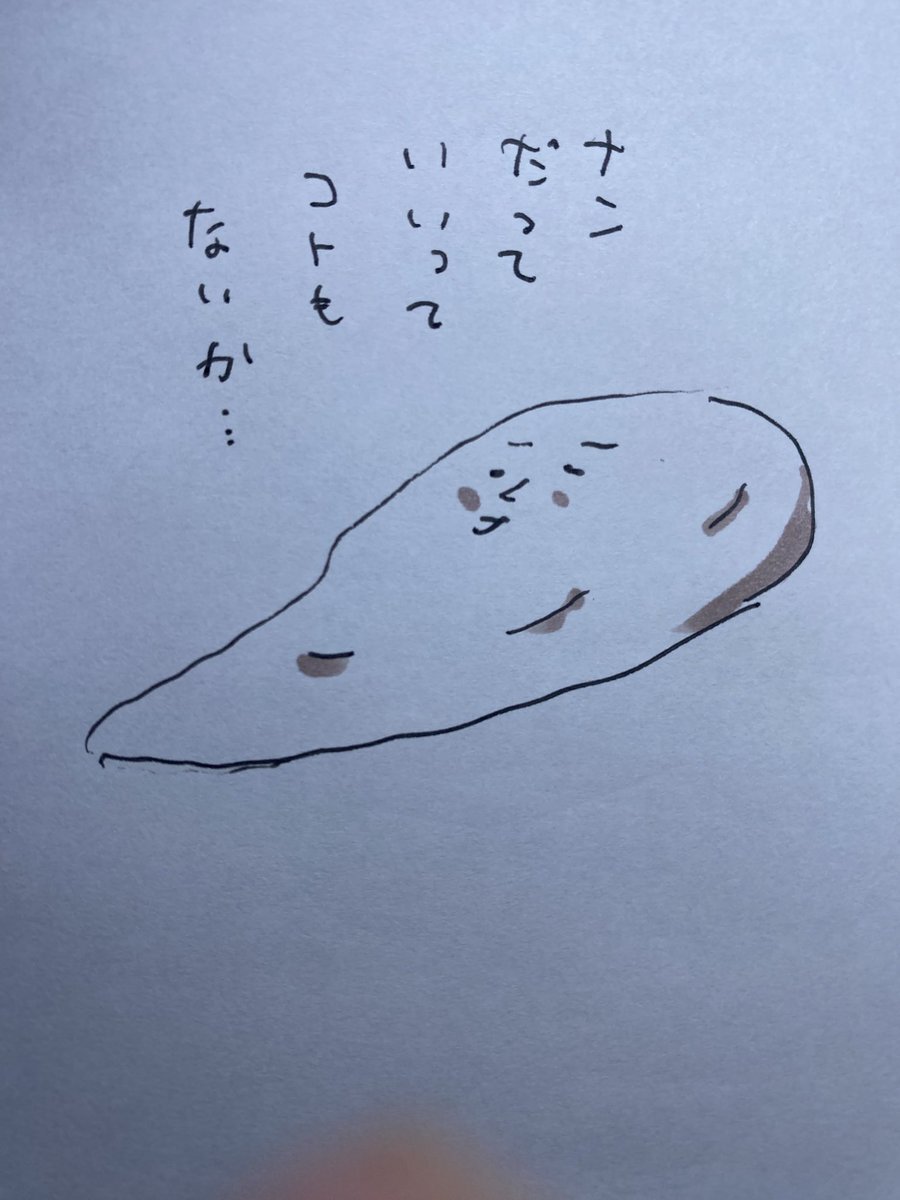 ナン
だって
いいって
コトも
ないか…